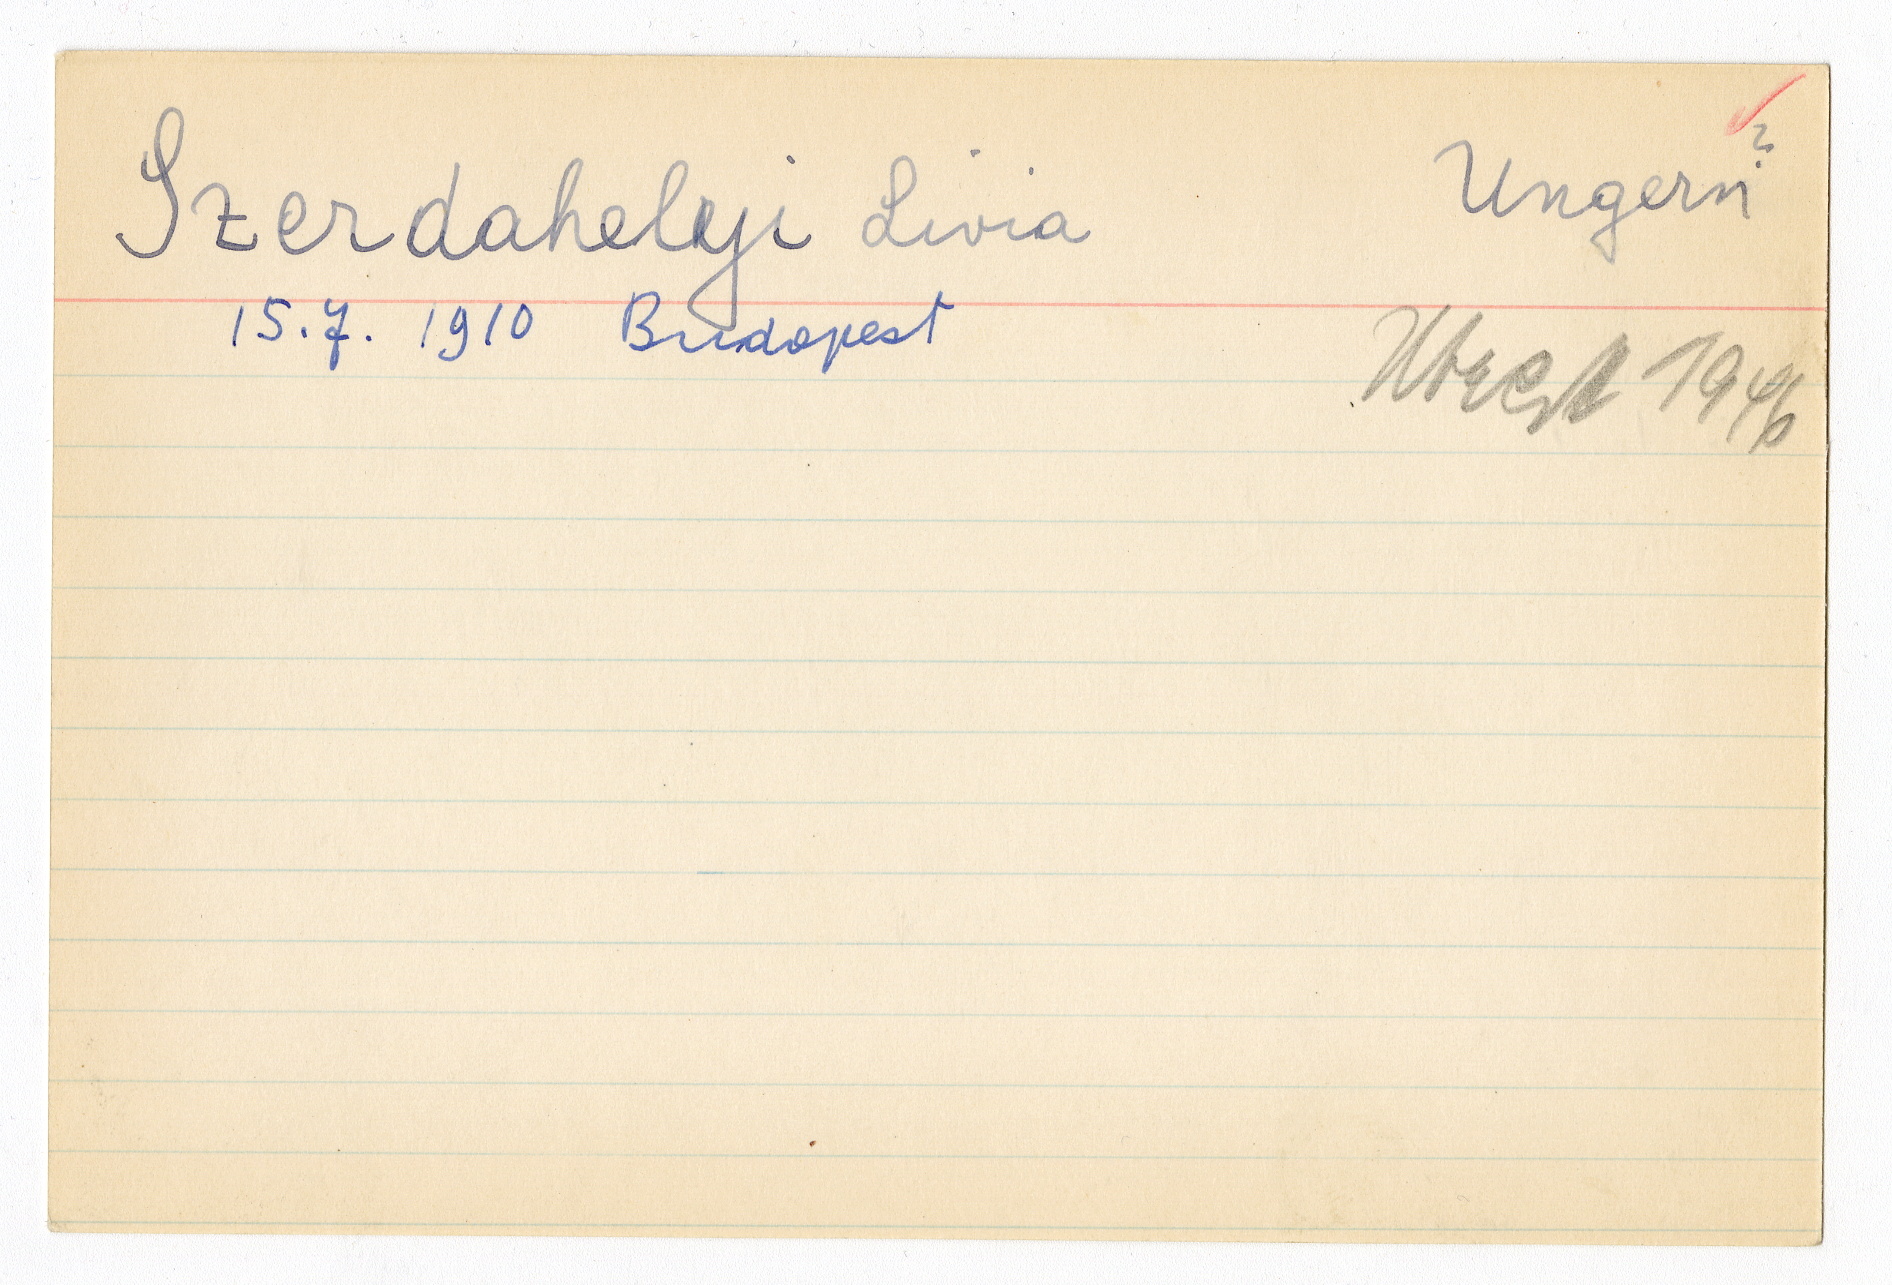 Szerdahelyi Livia Ungern ?
15.7. 1910 Budapest
1946